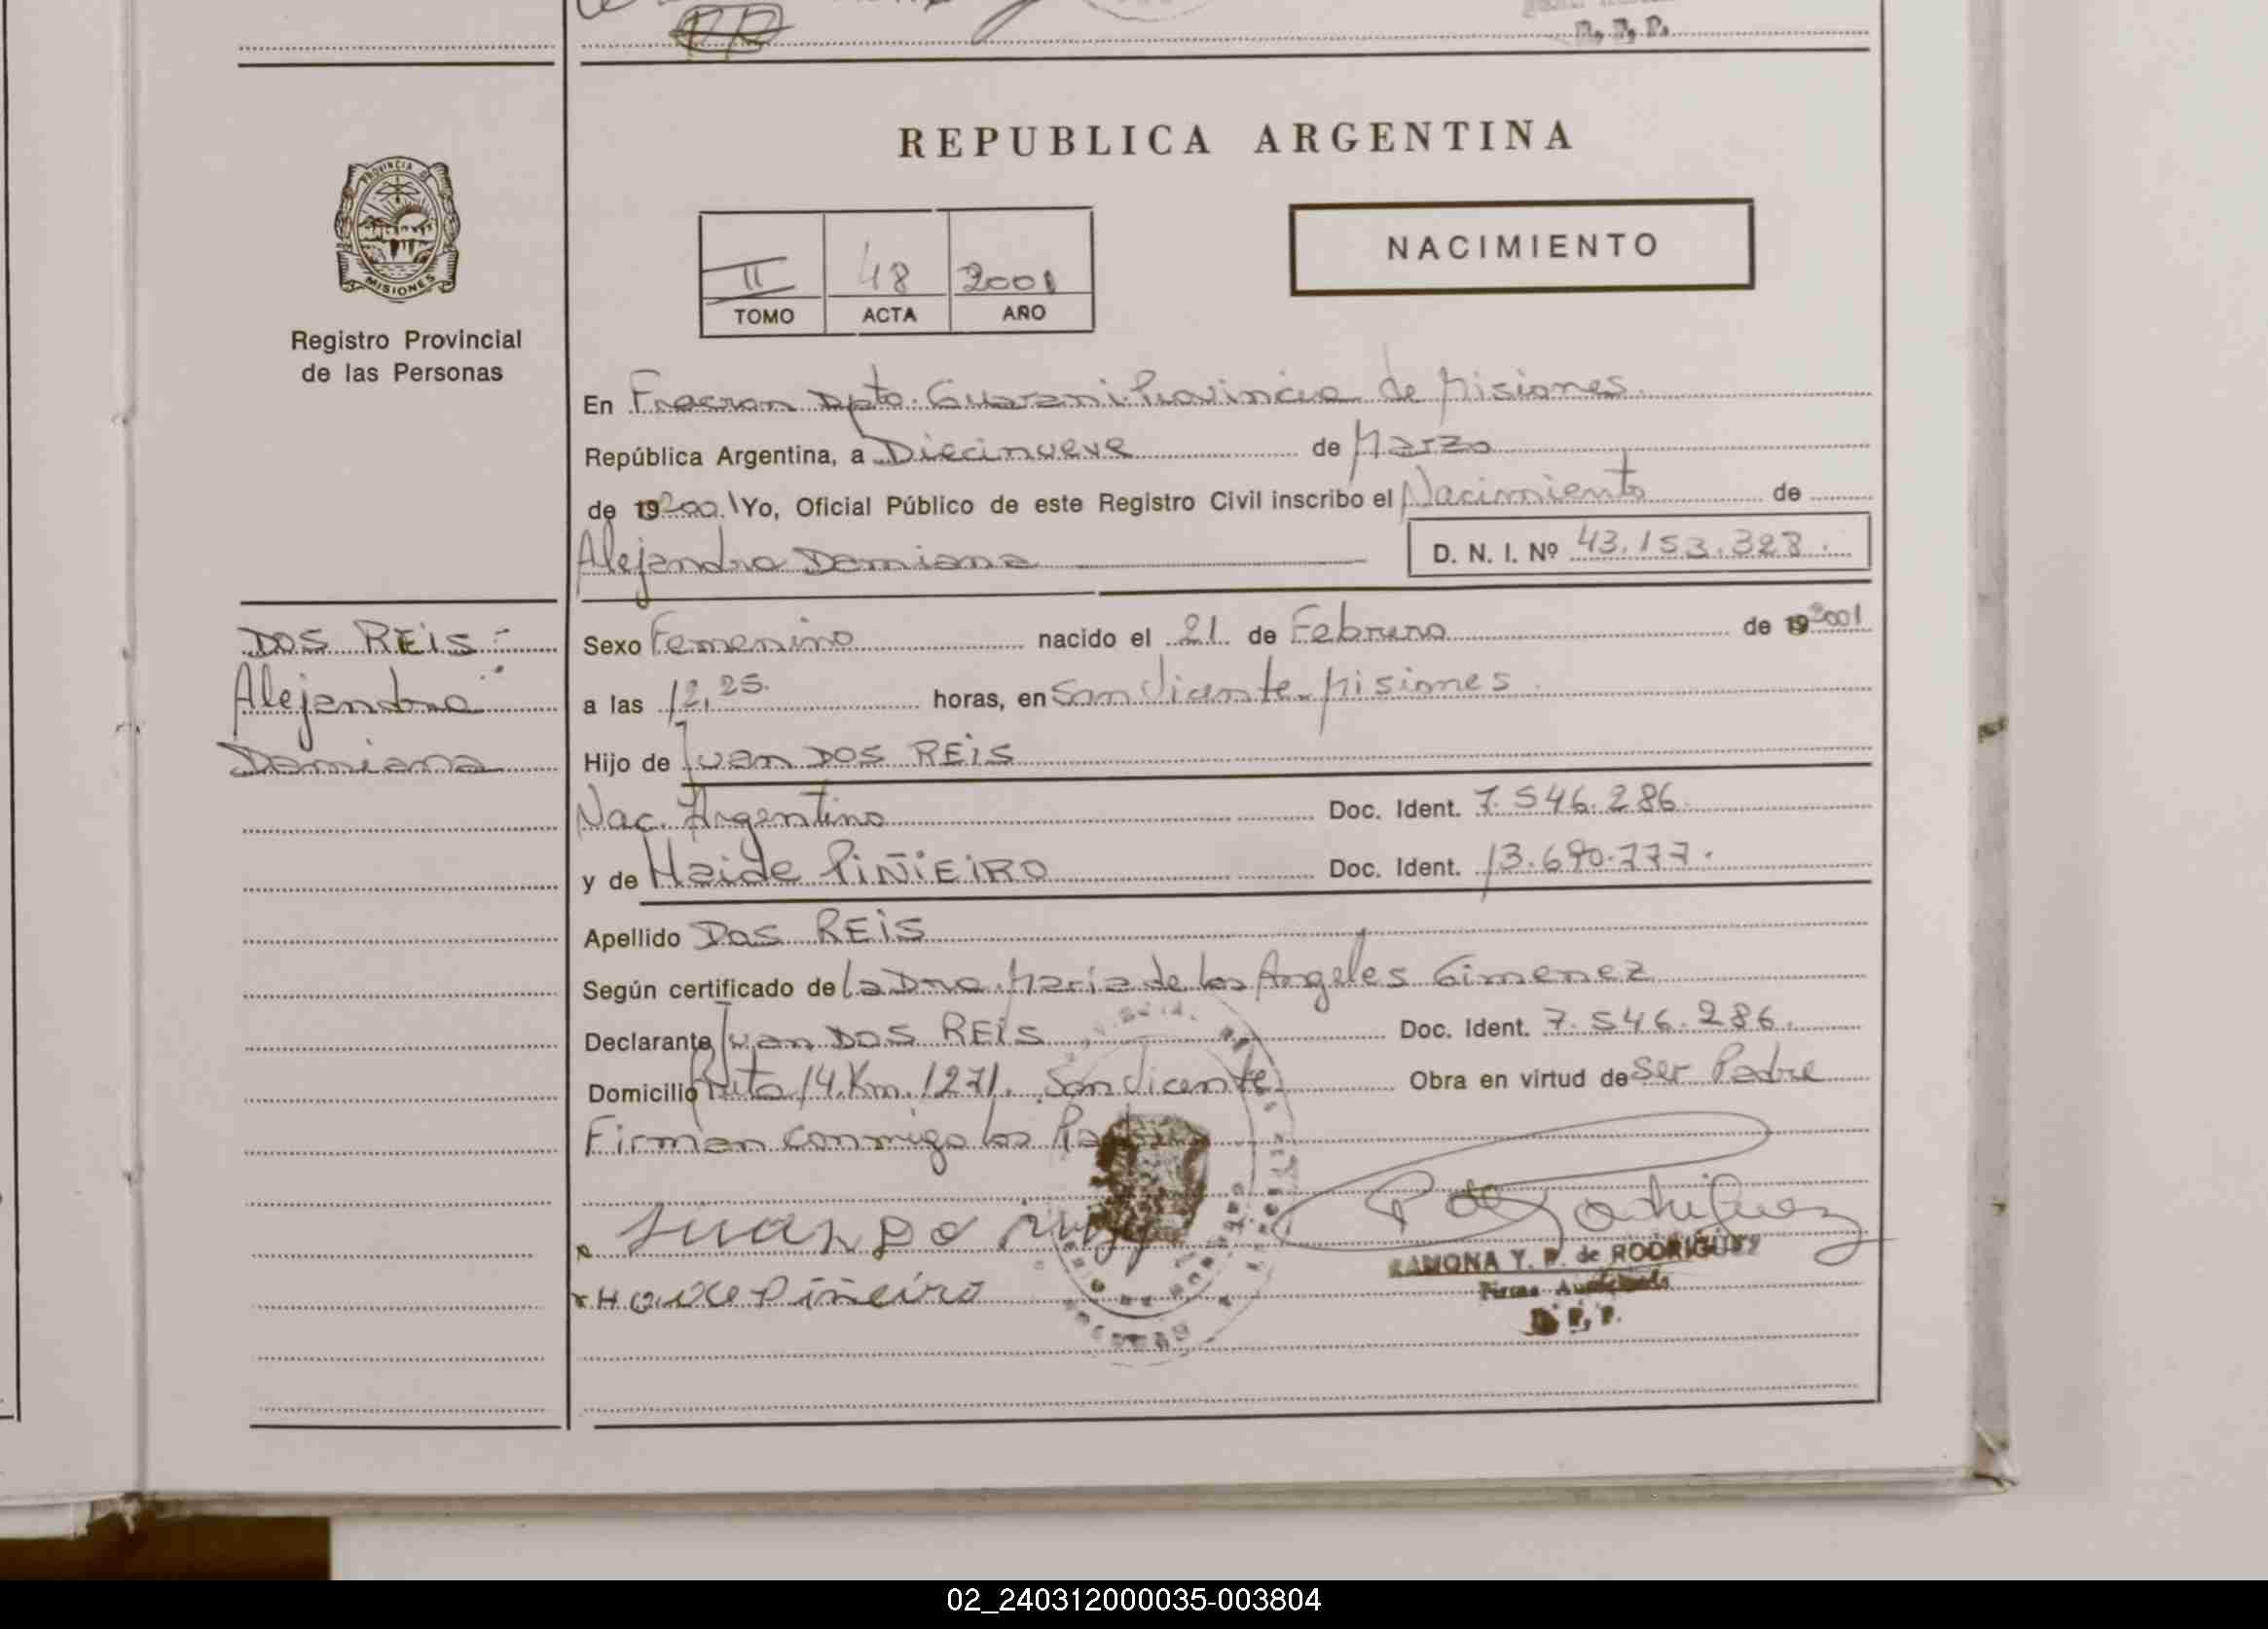 R. P. P.
REPUBLICA ARGENTINA
PROVINCIA DE
MISIONES
Registro Provincial
de las Personas
II 48 2001
TOMO ACTA AÑO
NACIMIENTO
En Fracran Dpto. Guarani. Provincia de Misiones.
República Argentina, a Diecinueve de Marzo
de 192001 Yo, Oficial Público de este Registro Civil inscribo el Nacimiento de
Alejandra Damiana D. N. I. Nº 43.153.328.
DOS REIS.-
Alejandra
Damiana
Sexo Femenino nacido el 21 de Febrero de 192001
a las 12,25. horas, en San Vicente. Misiones.
Hijo de Juan DOS REIS
Nac. Argentino Doc. Ident. 7.546.286.
y de Haide PIÑIEIRO Doc. Ident. 13.690.777.
Apellido DOS REIS
Según certificado de la Dra. Maria de los Angeles Gimenez
Declarante Juan DOS REIS Doc. Ident. 7.546.286.
Domicilio Ruta 14. Km. 1271. San Vicente Obra en virtud de Ser Padre
Firman conmigo los Padres
Juan Do
Haide Piñeiro
RAMONA Y. P. de RODRIGUEZ
Firma Autorizada
R. P. P.
02_240312000035-003804